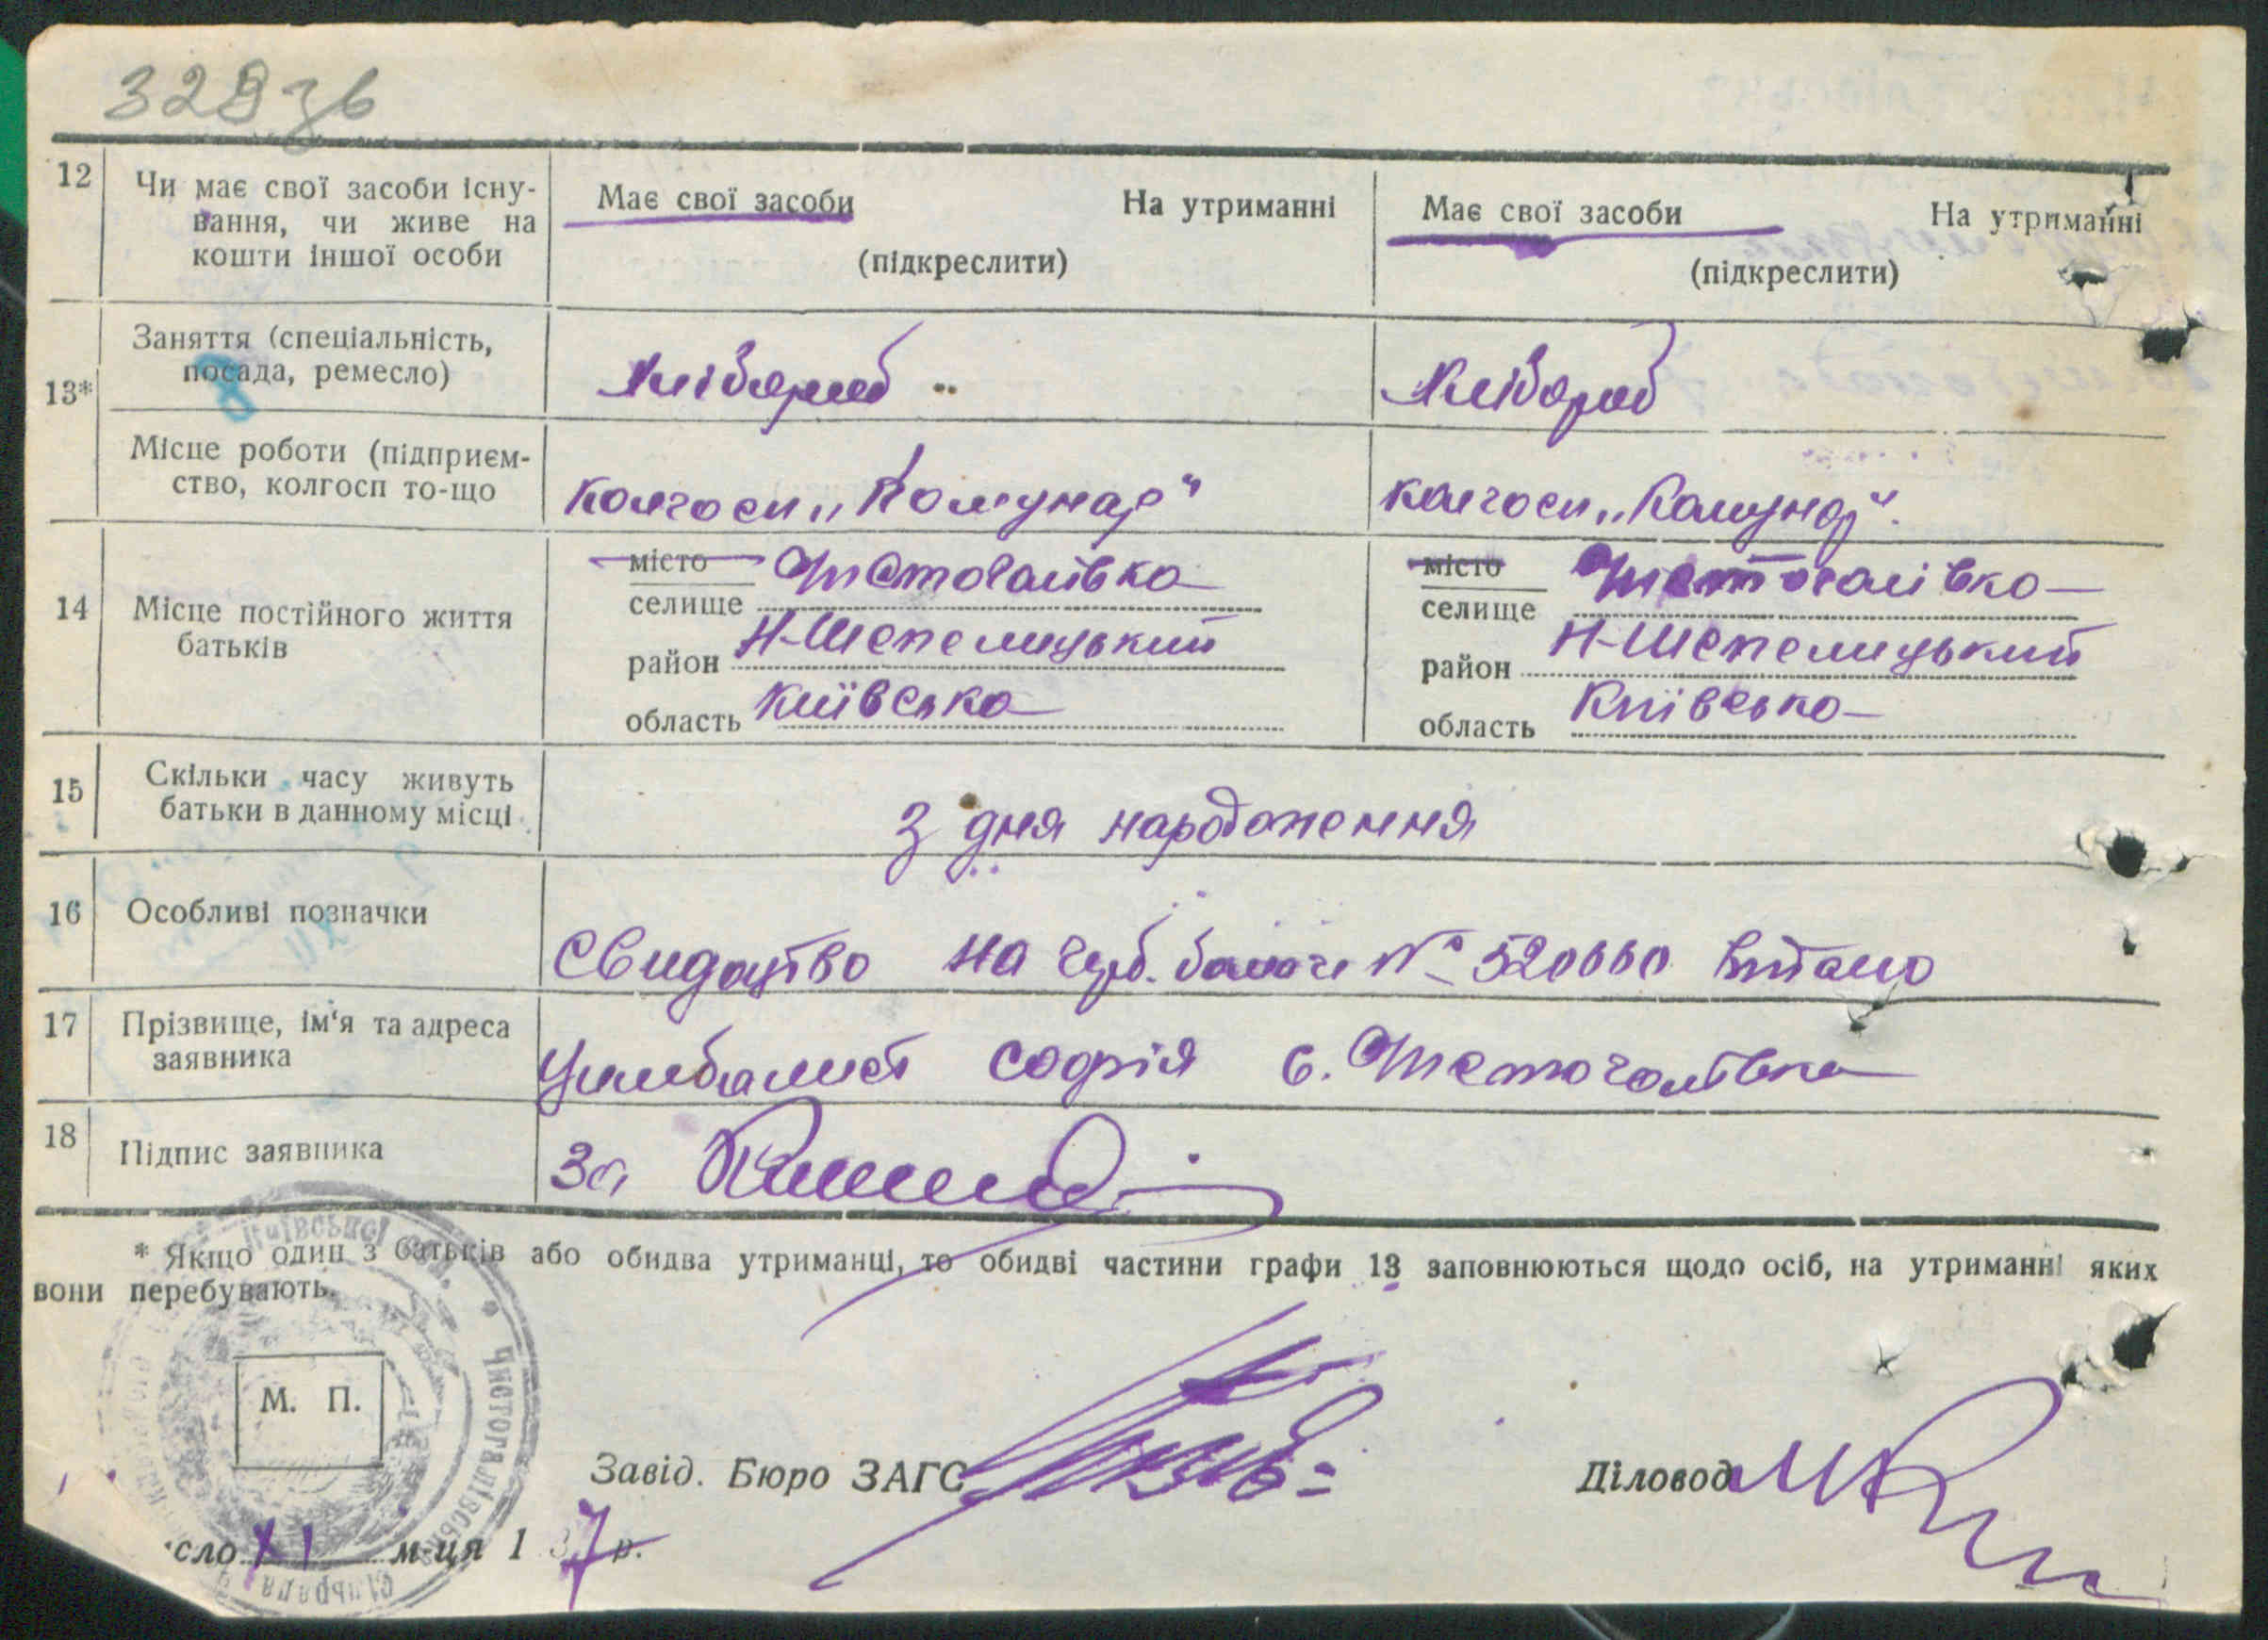 329 зв
12 Чи має свої засоби існу-
вання, чи живе на
кошти іншої особи
Має свої засоби На утриманні
(підкреслити)
Має свої засоби На утриманні
(підкреслити)
13* Заняття (спеціальність,
посада, ремесло)
хлібороб
хлібороб
Місце роботи (підприєм-
ство, колгосп то-що
колгосп „Комунар"
колгосп „Комунар".
14 Місце постійного життя
батьків
місто Чистогалівка
селище
район Н-Шепелицький
область Київська
місто Чистогалівка
селище
район Н-Шепелицький
область Київська
15 Скільки часу живуть
батьки в данному місці
З дня народження
16 Особливі позначки
Свидоцтво на № 520660 видано
17 Прізвище, ім'я та адреса
заявника
Цимбалист Софія с. Чистогалівка
18 Підпис заявника
За
* Якщо один з батьків або обидва утриманці, то обидві частини графи 13 заповнюються щодо осіб, на утриманні яких
вони перебувають.
М. П.
Київської обл. * Чистогалівська сільрада
Завід. Бюро ЗАГС
Діловод
сло XI м-ця 1 37 р.